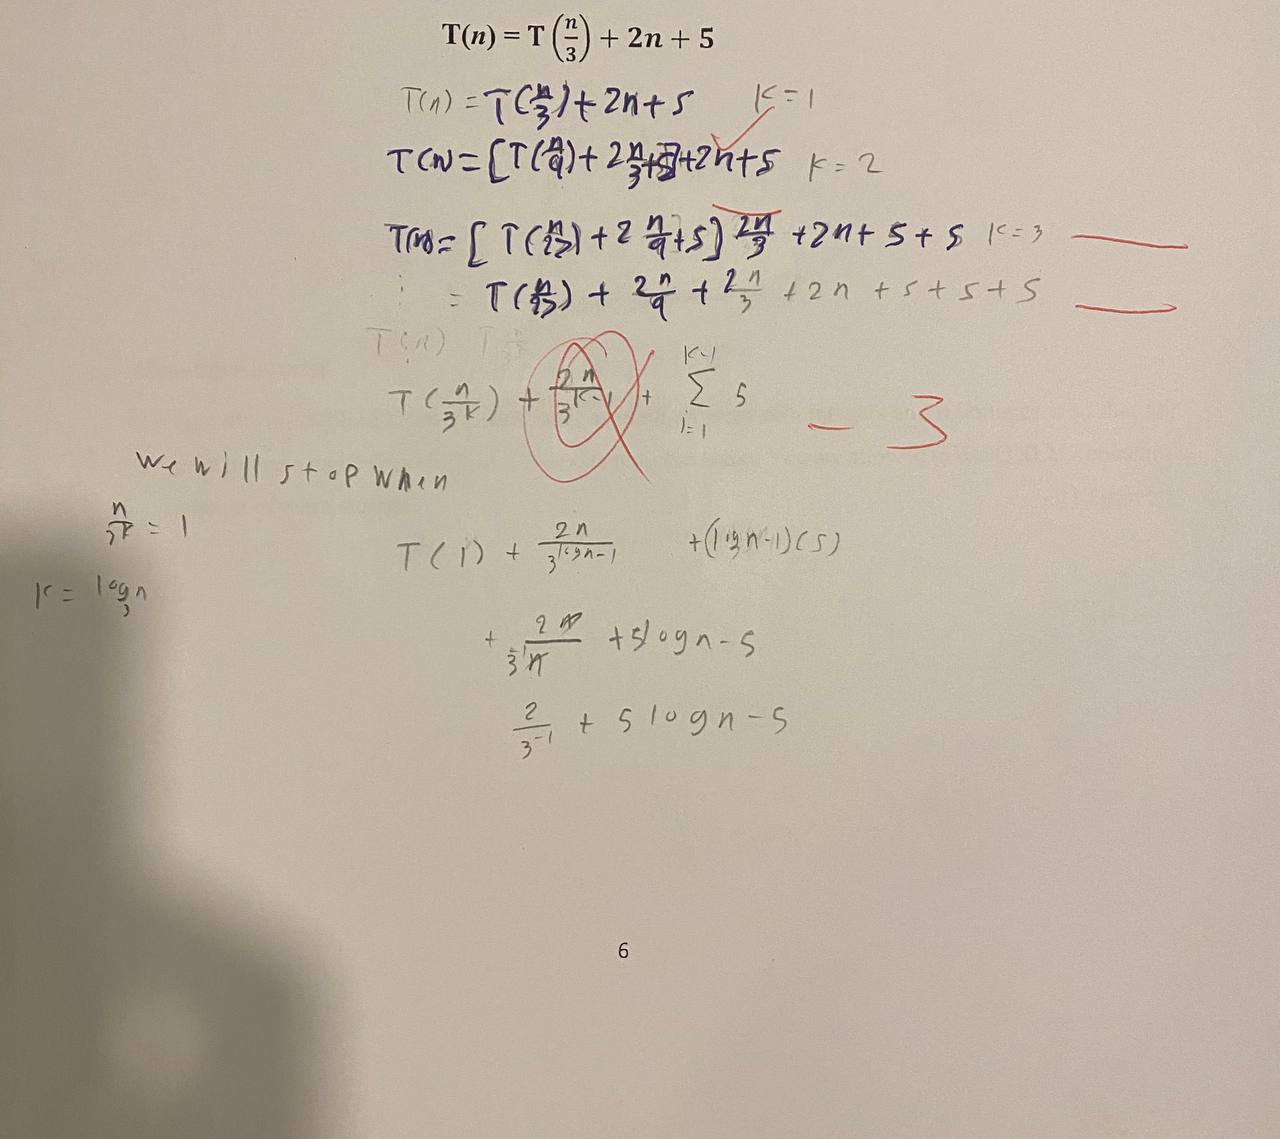 T(n) = T(n/3) + 2n + 5
T(n) = T(n/3) + 2n + 5 K=1
T(n) = [T(n/9) + 2n/3 + 5] + 2n + 5 K=2
T(n) = [T(n/27) + 2 n/9 + 5] 2n/3 + 2n + 5 + 5 K=3
⋮ = T(n/27) + 2n/9 + 2n/3 + 2n + 5 + 5 + 5
T(n) T
T(n/3^K) + 2n/3^(K-1) + Σ_(i=1)^(K-1) 5 - 3
We will stop when
n/3^K = 1
T(1) + 2n/3^(log n-1) + (log_3 n-1)(5)
K = log_3 n
+ 2n/3^-1 n + 5log n - 5
2/3^-1 + 5 log n - 5
6